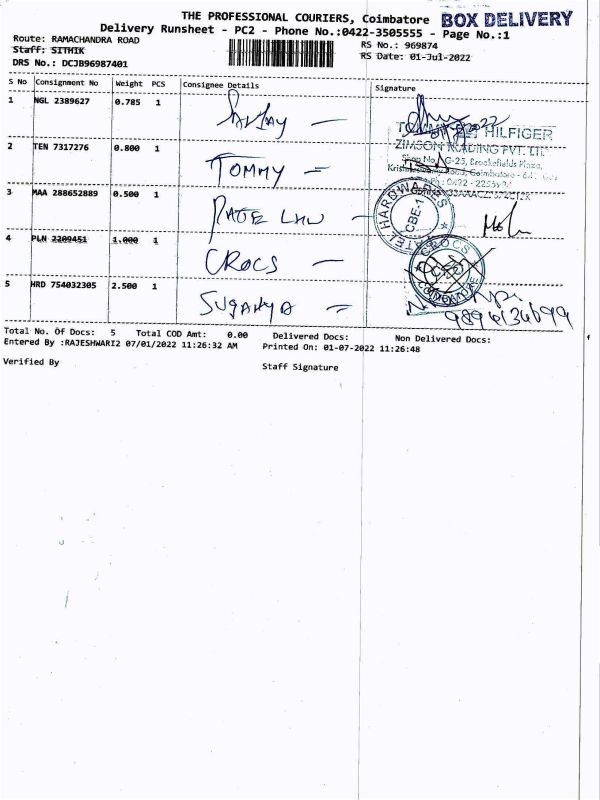 THE PROFESSIONAL COURIERS, Coimbatore BOX DELIVERY
Delivery Runsheet - PC2 - Phone No.:0422-3505555 - Page No.:1
Route: RAMACHANDRA ROAD RS No.: 969874
Staff: SITHIK RS Date: 01-Jul-2022
DRS No.: DCJB96987401
S No Consignment No Weight PCS Consignee Details Signature
1 NGL 2389627 0.785 1
TOMMY HILFIGER
2 TEN 7317276 0.800 1 TOMMY
ZIMSON TRADING PVT. LTD.
Shop No. G-25, Brookefields Plaza,
Road, Coimbatore
3 MAA 288652889 0.500 1
HARDWARES
CBE-1
4 PLN 2209451 1.000 1 CROCS
CROCS
5 HRD 754032305 2.500 1 SUGANYA
Total No. Of Docs: 5 Total COD Amt: 0.00 Delivered Docs: Non Delivered Docs:
Entered By :RAJESHWARI2 07/01/2022 11:26:32 AM Printed On: 01-07-2022 11:26:48
Verified By Staff Signature